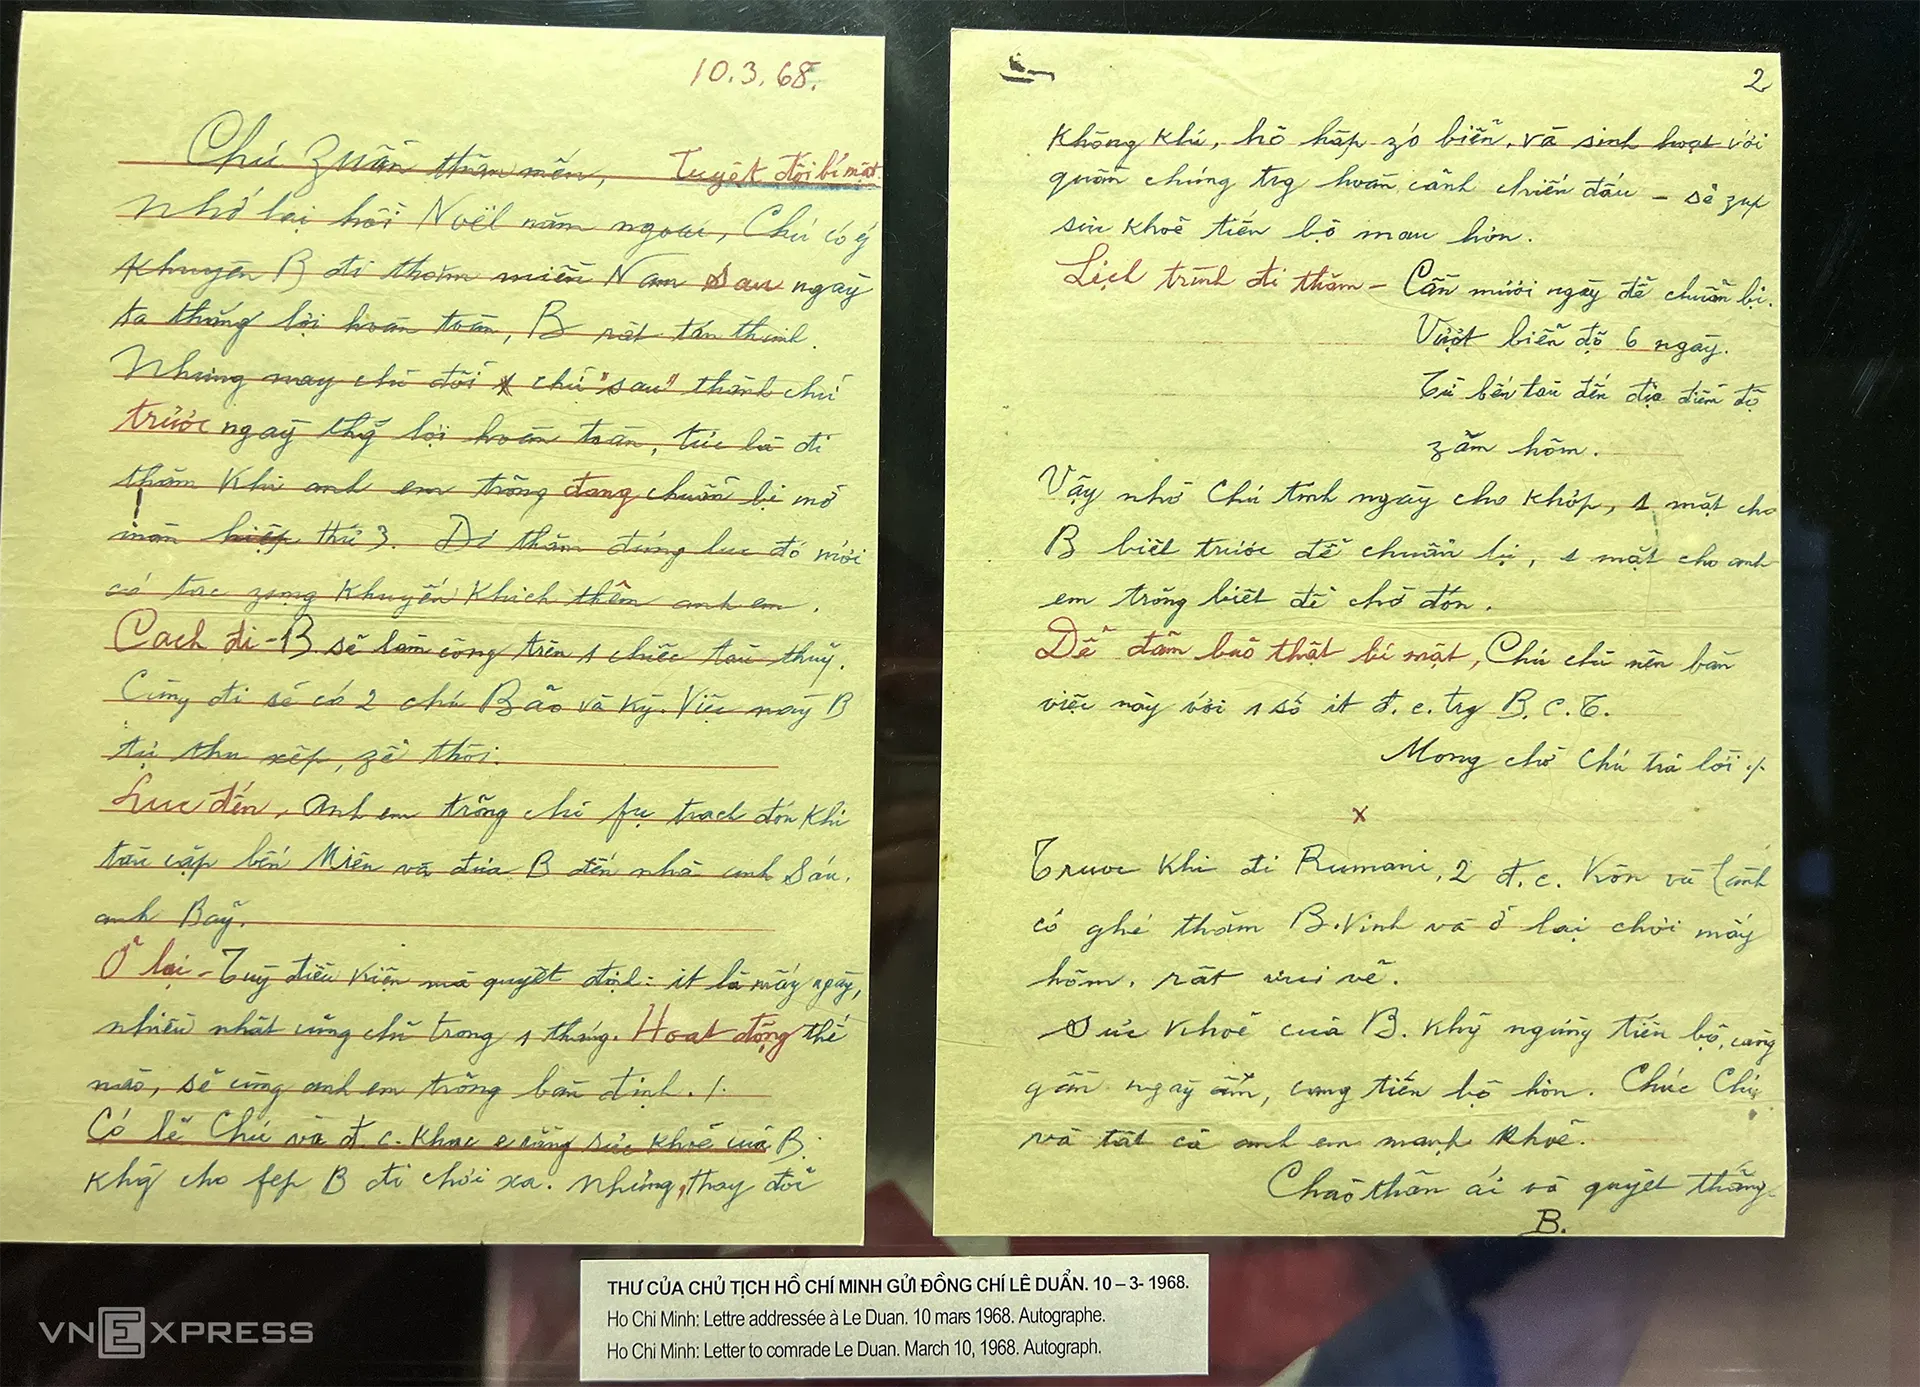 10.3.68.
Chú Zuẩn thân mến, Tuyệt đối bí mật.
Nhớ lại hồi Noël năm ngoái, Chú có ý
khuyên B đi thăm miền Nam sau ngày
ta thắng lợi hoàn toàn, B rất tán thành.
Nhưng nay chỉ đổi chữ "sau" thành chữ
trước ngày thắg lợi hoàn toàn, tức là đi
thăm khi anh em trỏng đang chuẩn bị mở
màn hiệp thứ 3. Đi thăm đúng lúc đó mới
có tác zụng khuyến khích thêm anh em.
Cách đi - B sẽ làm công trên 1 chiếc tàu thuỷ.
Cùng đi sẽ có 2 chú Bảo và Kỳ. Việc này B
tự thu xếp, zễ thôi.
Lúc đến, Anh em trỏng chỉ fụ trách đón khi
tàu cập bến Miên và đưa B đến nhà anh Sáu,
anh Bảy.
Ở lại - Tuỳ điều kiện mà quyết định: ít là mấy ngày,
nhiều nhất cũng chỉ trong 1 tháng. Hoạt động thế
nào, sẽ cùng anh em trỏng bàn định./.
Có lẽ Chú và đ.c. khác e rằng sức khoẻ của B.
khg cho fép B đi chơi xa. Nhưng, thay đổi
2
không khí, hô hấp zó biển, và sinh hoạt với
quần chúng trg hoàn cảnh chiến đấu - sẽ zúp
sức khoẻ tiến bộ mau hơn.
Lịch trình đi thăm - Cần mười ngày để chuẩn bị.
Vượt biển độ 6 ngày.
Từ bến tàu đến địa điểm độ
zăm hôm.
Vậy nhờ Chú tính ngày cho khớp, 1 mặt cho
B biết trước để chuẩn bị, 1 mặt cho anh
em trỏng biết để chờ đón.
Để đảm bảo thật bí mật, Chú chỉ nên bàn
việc này với 1 số ít đ.c. trg B.C.T.
Mong chờ Chú trả lời./.
x
Trước khi đi Rumani, 2 đ.c. Kôn và
có ghé thăm B. Vinh và ở lại chơi mấy
hôm, rất vui vẻ.
Sức khoẻ của B. khg ngừng tiến bộ, càng
gần ngày ấm, càng tiến bộ hơn. Chúc Chú
và tất cả anh em mạnh khoẻ.
Chào thân ái và quyết thắng
B.
THƯ CỦA CHỦ TỊCH HỒ CHÍ MINH GỬI ĐỒNG CHÍ LÊ DUẨN. 10 – 3- 1968.
Ho Chi Minh: Lettre addressée à Le Duan. 10 mars 1968. Autographe.
Ho Chi Minh: Letter to comrade Le Duan. March 10, 1968. Autograph.
VNEXPRESS